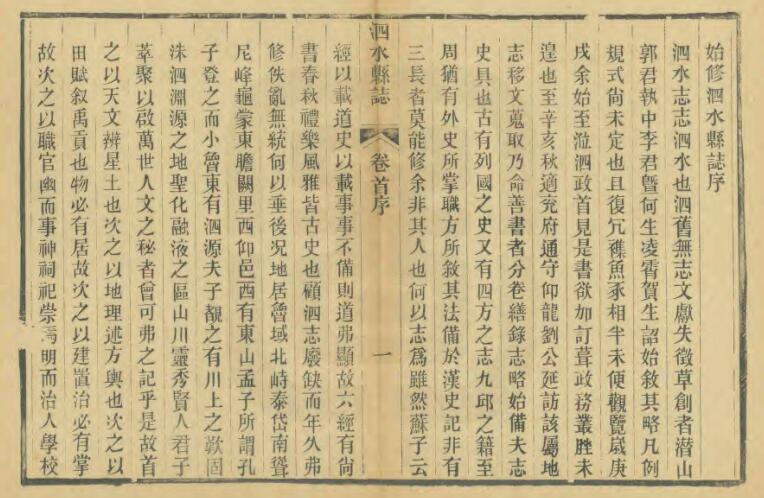 始修泗水縣誌序
泗水志志泗水也泗舊無志文獻失徵草創者潛山
郭君執中李君曁何生凌霄賀生詔始敘其略凡例
規式尚未定也且復冗襍魚豕相半未便觀覽歲庚
戌余始至涖泗政首見是書欲加訂葺政務叢脞未
遑也至辛亥秋適兖府通守仰龍劉公延訪該屬地
志移文蒐取乃命善書者分卷繕錄志略始備夫志
史具也古有列國之史又有四方之志九邱之籍至
周猶有外史所掌職方所敘其法備於漢史記非有
三長者莫能修余非其人也何以志爲雖然蘇子云
泗水縣誌
卷首序
一
經以載道史以載事事不備則道弗顯故六經有尙
書春秋禮樂風雅皆古史也顧泗志廢缺而年久弗
修佚亂無統何以垂後况地居魯域北峙泰岱南聳
尼峰龜蒙東瞻闕里西仰邑西有東山孟子所謂孔
子登之而小魯東有泗源夫子覩之有川上之歎固
洙泗淵源之地聖化融液之區山川靈秀賢人君子
萃聚以啟萬世人文之秘者曾可弗之記乎是故首
之以天文辨星土也次之以地理述方輿也次之以
田賦叙禹貢也物必有居故次之以建置治必有掌
故次之以職官幽而事神祠祀崇焉明而治人學校